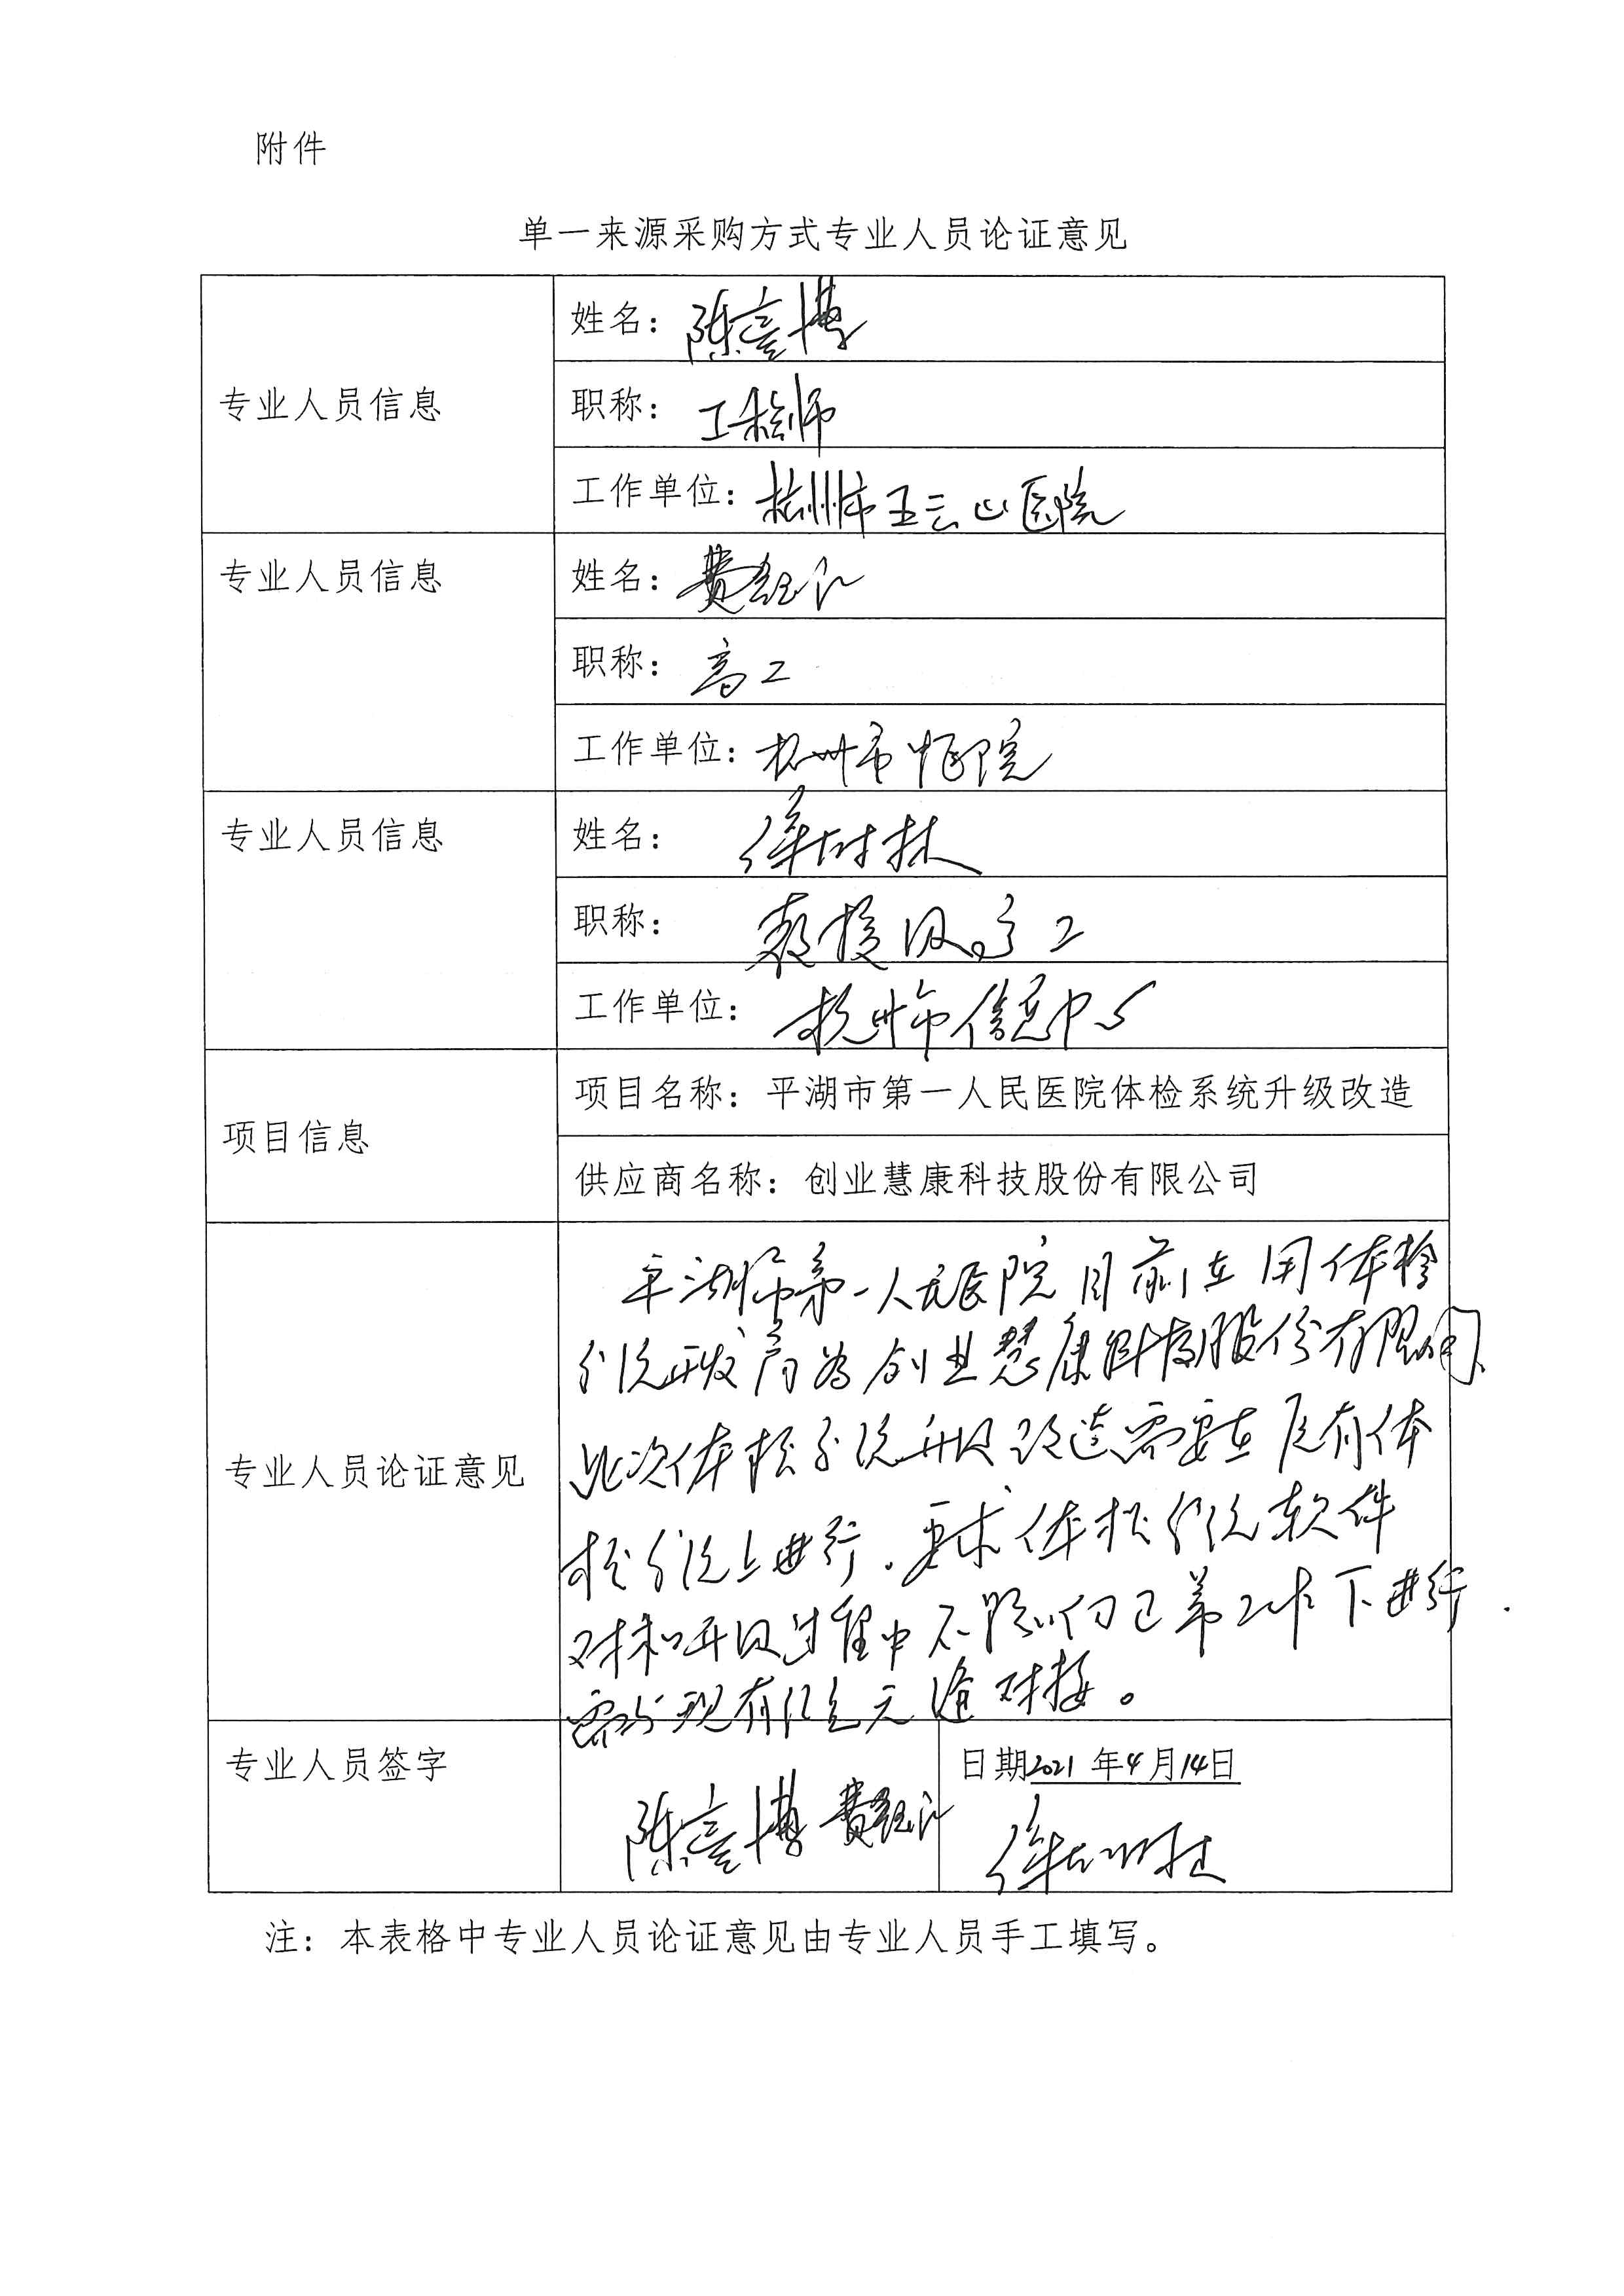 附件
单一来源采购方式专业人员论证意见
专业人员信息
姓名：陈
职称：工程师
工作单位：杭州市五云山医院
专业人员信息
姓名：费
职称：高工
工作单位：杭州市中医院
专业人员信息
姓名：
职称：教授级高工
工作单位：杭州市信息中心
项目信息
项目名称：平湖市第一人民医院体检系统升级改造
供应商名称：创业慧康科技股份有限公司
专业人员论证意见
平湖市第一人民医院目前在用体检
系统开发商为创业慧康科技股份有限公司，
此次体检系统升级改造需要在原有体
检系统上进行。要求体检系统软件
升级过程中不影响下进行．
需与现有系统无缝对接。
专业人员签字
陈 费
日期2021年4月14日
注：本表格中专业人员论证意见由专业人员手工填写。